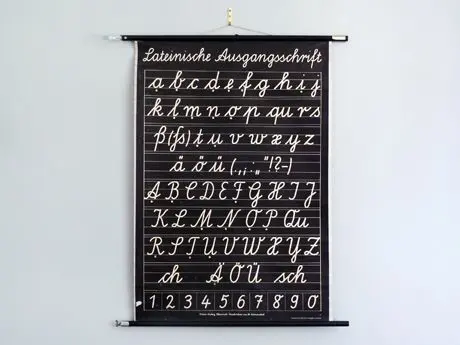 Lateinische Ausgangsschrift
a b c d e f g h i j
k l m n o p qu r s
ß (ſs) t u v w x y z
ä ö ü (.,; : „ "!?-)
A B C D E F G H I J
K L M N O P Qu
R S T U V W X Y Z
ch Ä Ö Ü sch
1 2 3 4 5 6 7 8 9 0